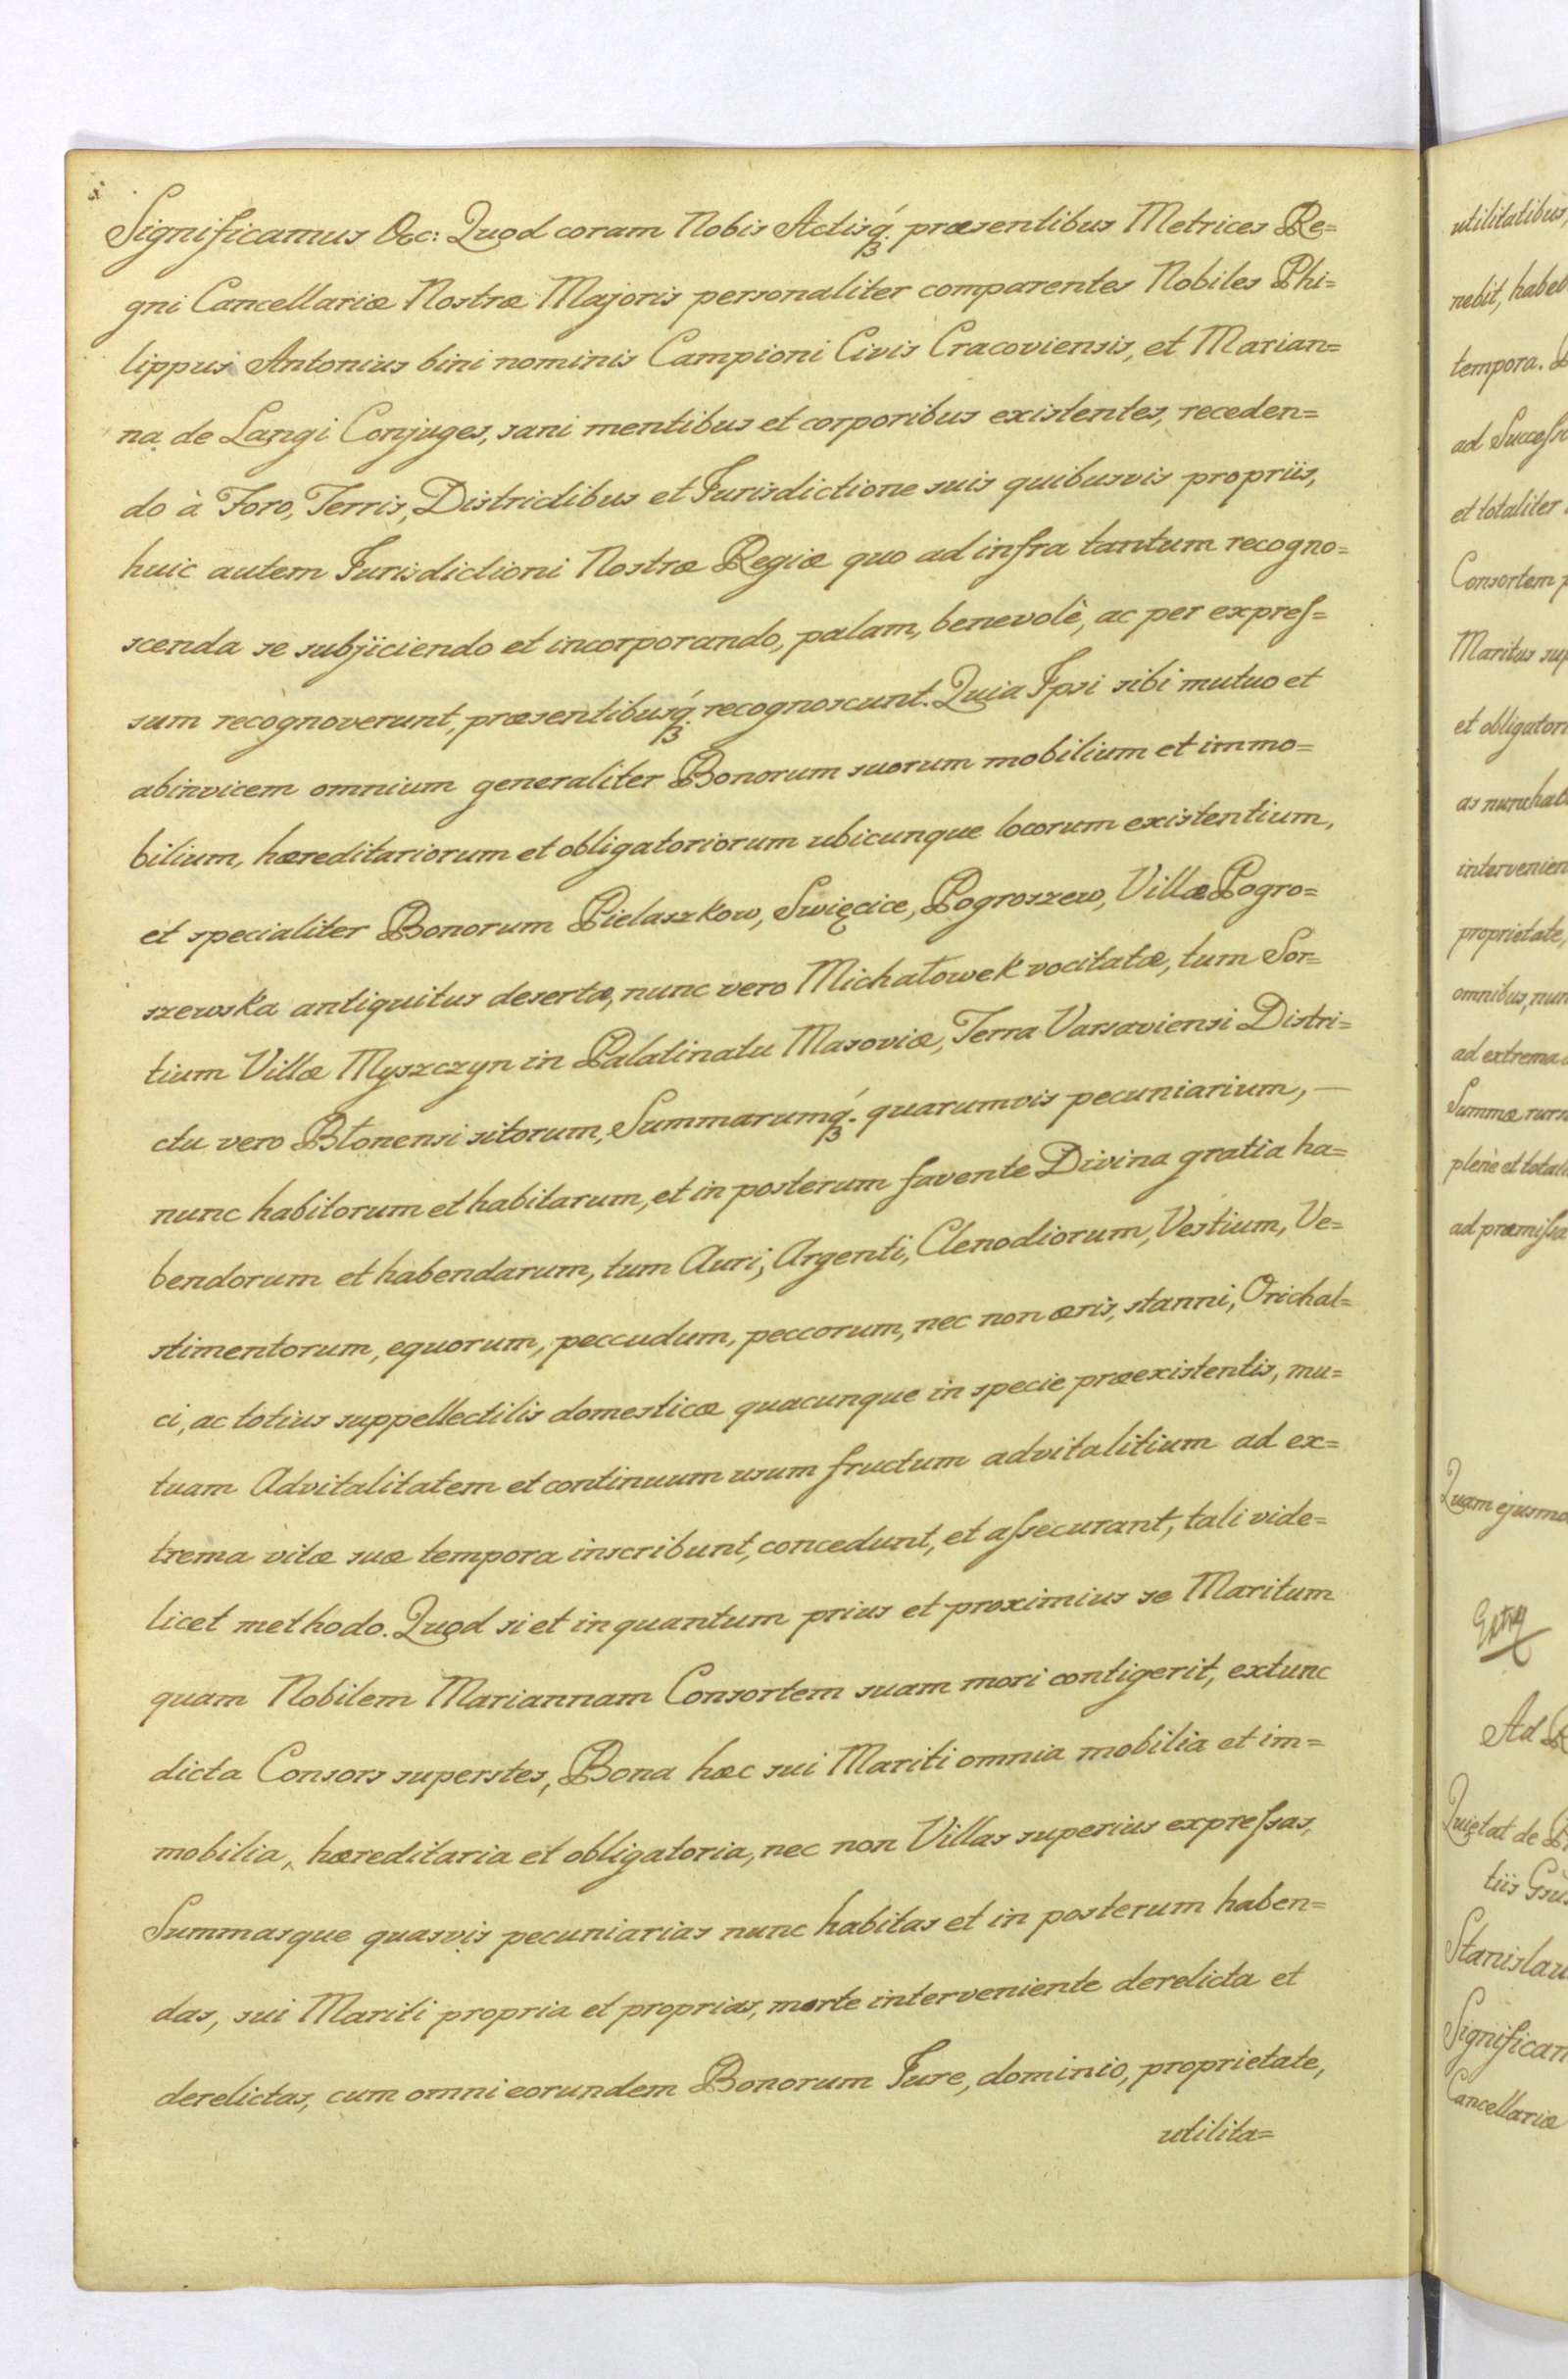 Significamus &c: Quod coram Nobis Actisq́ꝫ. præsentibus Metrices Re=
gni Cancellariæ Nostræ Majoris personaliter comparentes Nobiles Phi=
lippus Antonius bini nominis Campioni Civis Cracoviensis, et Marian=
na de Langi Conjuges, sani mentibus et corporibus existentes, receden=
do à Foro, Terris, Districtibus et Jurisdictione suis quibusvis propriis,
huic autem Jurisdictioni Nostræ Regiæ quo ad infra tantum recogno=
scenda se subjiciendo et incorporando, palam, benevolè, ac per expreſ=
sum recognoverunt, præsentibusq́ꝫ. recognoscunt. Quia Ipsi sibi mutuo et
abinvicem omnium generaliter Bonorum suorum mobilium et immo=
bilium, hæreditariorum et obligatoriorum ubicunque locorum existentium,
et specialiter Bonorum Pielaszkow, Swięcice, Pogroszew, Villæ Pogro=
szewska antiquitus desertæ, nunc vero Michałowek vocitatæ, tum Sor=
tium Villæ Myszczyn in Palatinatu Masoviæ, Terra Varsaviensi Distri=
ctu vero Błonensi sitorum, Summarumq́ꝫ. quarumvis pecuniarium, —
nunc habitorum et habitarum, et in posterum favente Divina gratia ha=
bendorum et habendarum, tum Auri, Argenti, Clenodiorum, Vestium, Ve=
stimentorum, equorum, peccudum, peccorum, nec non æris, stanni, Orichal=
ci, ac totius suppellectilis domesticæ quacunque in specie præexistentis, mu=
tuam Advitalitatem et continuum usum fructum advitalitium ad ex=
trema vitæ suæ tempora inscribunt, concedunt, et aſsecurant, tali vide=
licet methodo. Quod si et inquantum prius et proximius se Maritum
quam Nobilem Mariannam Consortem suam mori contigerit, extunc
dicta Consors superstes, Bona hæc sui Mariti omnia mobilia et im=
mobilia, hæreditaria et obligatoria, nec non Villas superius expreſsas,
Summasque quasvis pecuniarias nunc habitas et in posterum haben=
das, sui Mariti propria et proprias, morte interveniente derelicta et
derelictas, cum omni eorundem Bonorum Jure, dominio, proprietate,
utilita=
utilitatibus,
nebit, habeb
tempora.
ad Succeſso
et totaliter
Consortem p
Maritus sup
et obligatori
as nunc hab
intervenien
proprietate,
omnibus, nun
ad extrema
Summæ rurs
plenè et total
ad præmiſsa
Quam ejusmo
Ad
Quietat de
tiis
Stanislau
Significam
Cancellariæ